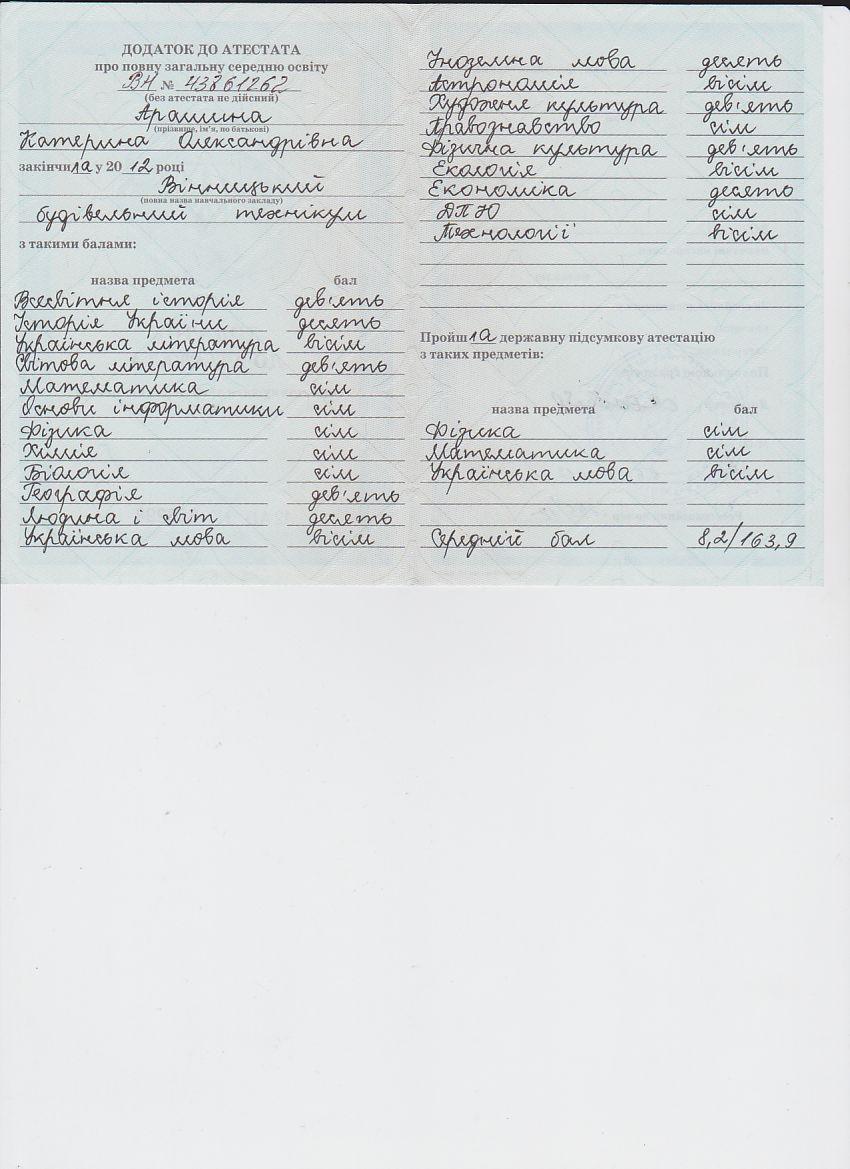 ДОДАТОК ДО АТЕСТАТА
про повну загальну середню освіту
ВН № 43861262
(без атестата не дійсний)
Арашина
(прізвище, ім'я, по батькові)
Катерина Олександрівна
закінчила у 2012 році
Вінницький
(повна назва навчального закладу)
будівельний технікум
з такими балами:
назва предмета бал
Всесвітня історія дев'ять
Історія України десять
Українська література вісім
Світова література дев'ять
Математика сім
Основи інформатики сім
Фізика сім
Хімія сім
Біологія сім
Географія дев'ять
Людина і світ десять
Українська мова вісім
Іноземна мова десять
Астрономія вісім
Художня культура дев'ять
Правознавство сім
Фізична культура дев'ять
Екологія вісім
Економіка десять
ДПЮ сім
Технології вісім
Пройшла державну підсумкову атестацію
з таких предметів:
назва предмета бал
Фізика сім
Математика сім
Українська мова вісім
Середній бал 8,2/163,9